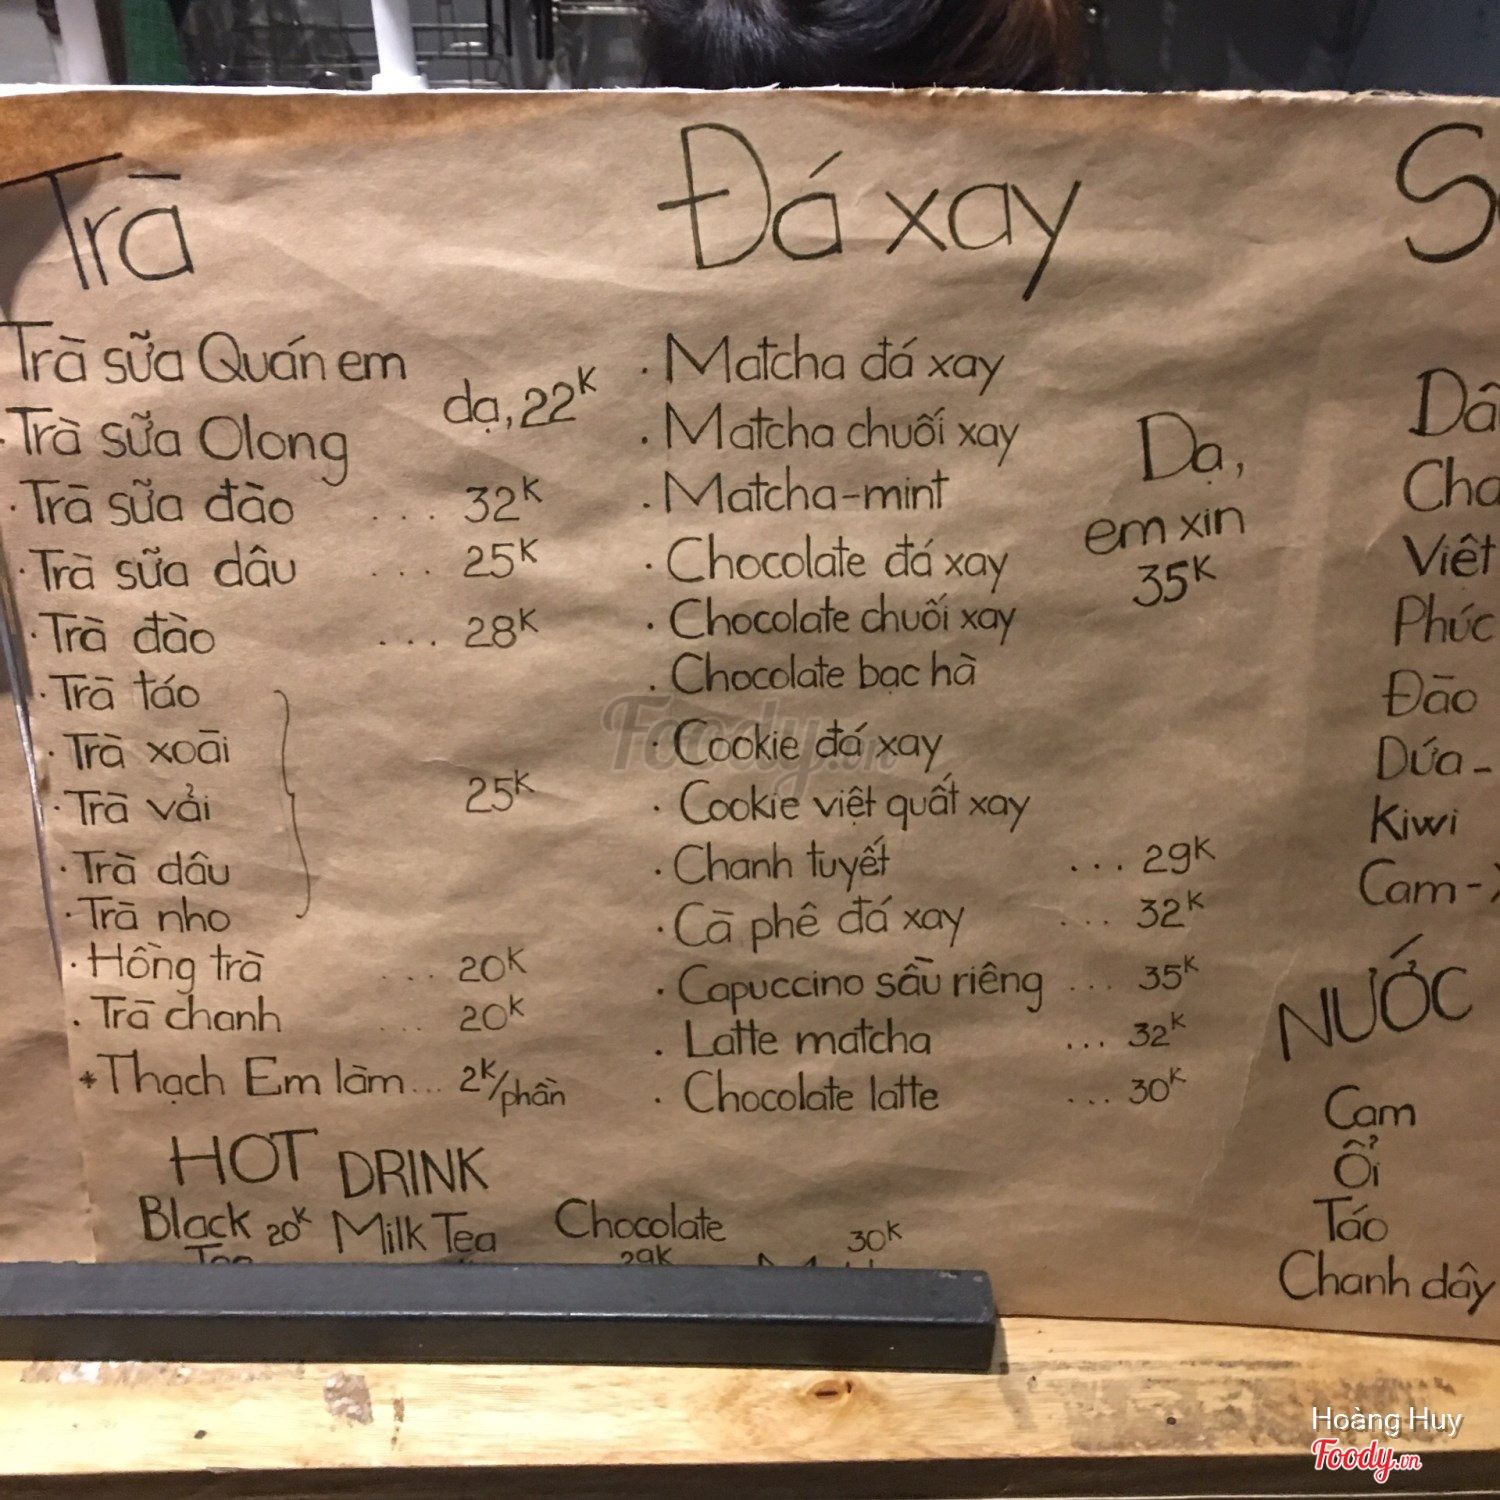 Trà
Trà sữa Quán em
dạ, 22K
· Trà sữa Olong
· Trà sữa đào ... 32K
· Trà sữa dâu ... 25K
· Trà đào ... 28K
· Trà táo
· Trà xoài
· Trà vải
25K
· Trà dâu
· Trà nho
· Hồng trà ... 20K
· Trà chanh ... 20K
* Thạch Em làm ... 2K/phần
HOT DRINK
Black 20K Milk Tea Chocolate 30K
Tea 29K
Đá xay
· Matcha đá xay
· Matcha chuối xay
· Matcha-mint
· Chocolate đá xay
· Chocolate chuối xay
· Chocolate bạc hà
· Cookie đá xay
· Cookie việt quất xay
Dạ,
em xin
35K
· Chanh tuyết ... 29K
· Cà phê đá xay ... 32K
· Capuccino sầu riêng ... 35K
· Latte matcha ... 32K
· Chocolate latte ... 30K
S
Dâ
Cha
Việt
Phúc
Đào
Dứa -
Kiwi
Cam -
NƯỚC
Cam
Ổi
Táo
Chanh dây
Foody.vn
Hoàng Huy
Foody.vn